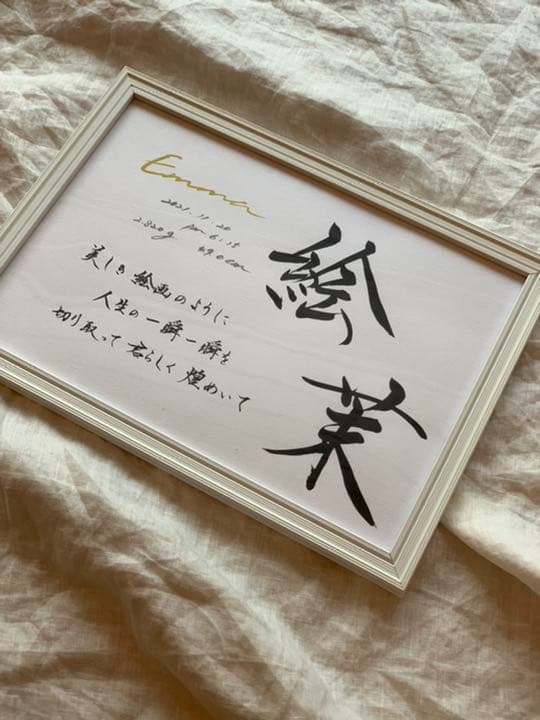 Emma
2021.11.20
pm 6:18
2.820g 49.0cm
絵茉
美しき絵画のように
人生の一瞬一瞬を
切り取って君らしく煌めいて